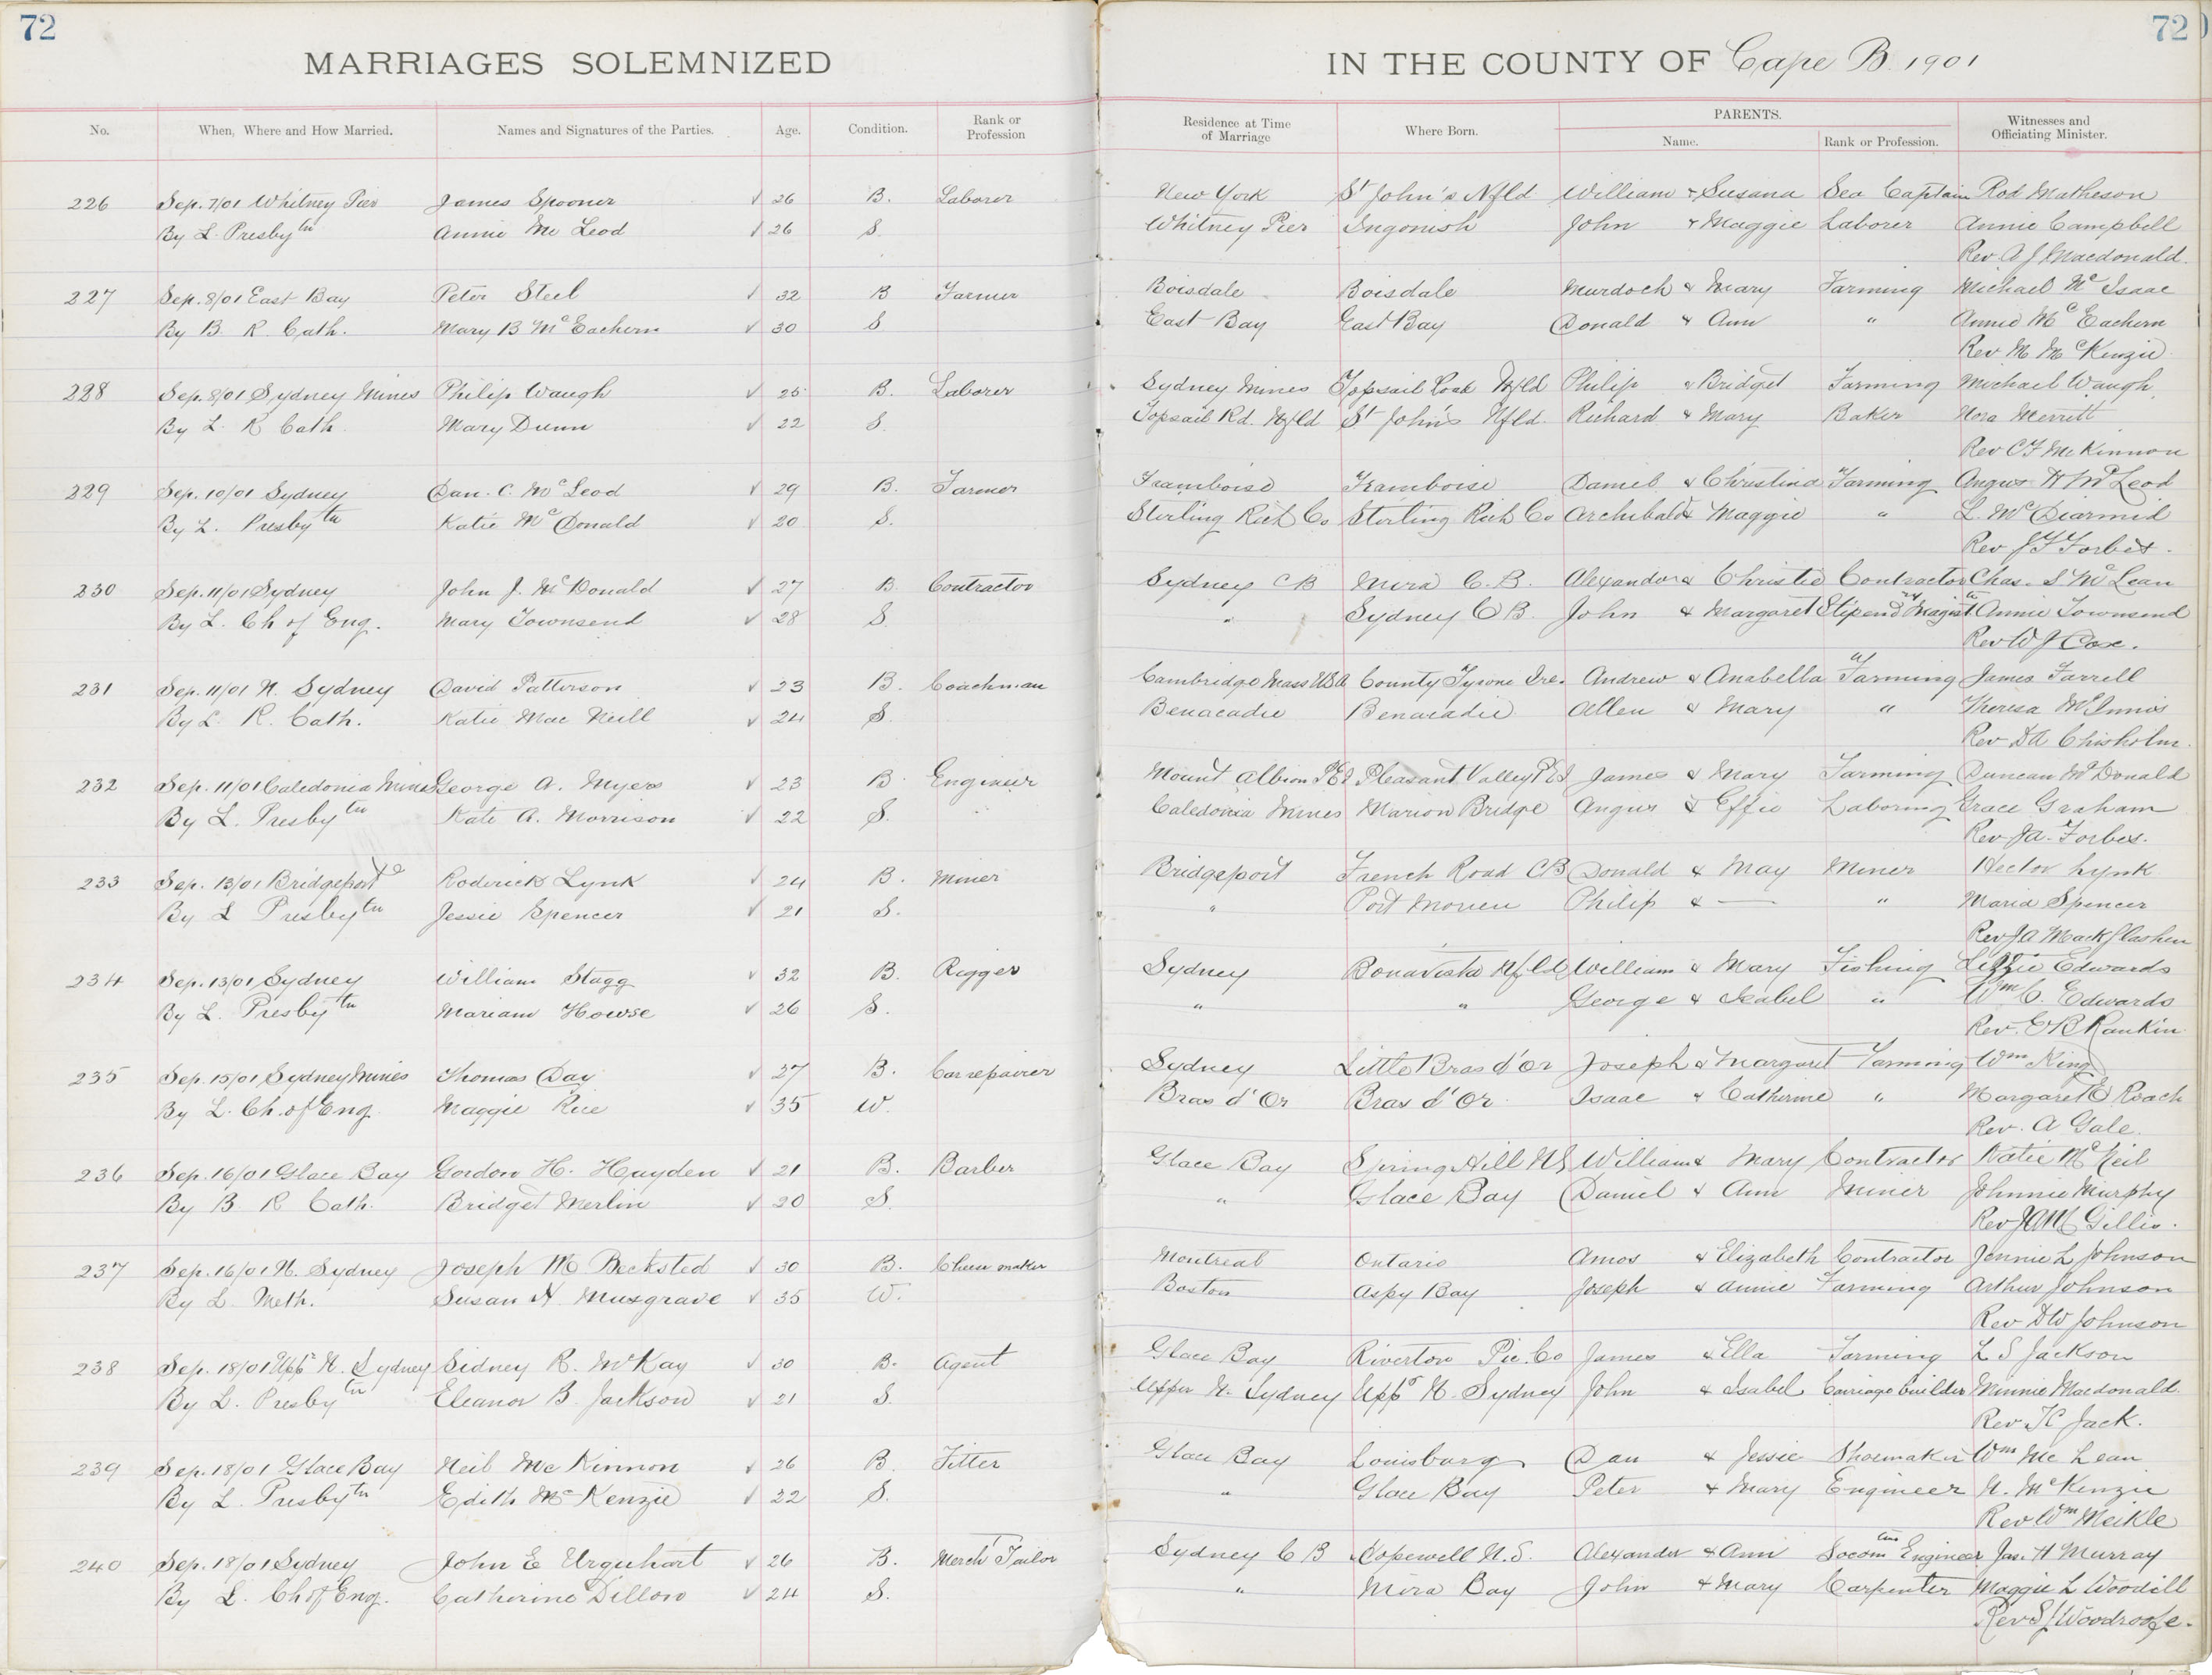 72
72
MARRIAGES SOLEMNIZED IN THE COUNTY OF Cape B. 1901
No. When, Where and How Married. Names and Signatures of the Parties. Age. Condition. Rank or Profession Residence at Time of Marriage Where Born. PARENTS. Name. Rank or Profession. Witnesses and Officiating Minister.
226 Sep. 7/01 Whitney Pier James Spooner √ 26 B. Laborer New York St John's Nfld William & Susana Sea Captain Rod Matheson
By L. Presbytn Annie Mc Leod √ 26 S. Whitney Pier Ingonish John & Maggie Laborer Annie Campbell
Rev A J Macdonald.
227 Sep. 8/01 East Bay Peter Steel √ 32 B Farmer Boisdale Boisdale Murdoch & Mary Farming Michael Mc Isaac
By B R. Cath. Mary B McEachern √ 30 S East Bay East Bay Donald & Ann " Annie McEachern
Rev M McKenzie
228 Sep. 8/01 Sydney Mines Philip Waugh √ 25 B. Laborer Sydney Mines Topsail Road Nfld Philip & Bridget Farming Michael Waugh
By L. R Cath. Mary Dunn √ 22 S. Topsail Rd. Nfld St John's Nfld. Richard & Mary Baker Nora Merritt
Rev C F McKinnon
229 Sep. 10/01 Sydney Dan. C. McLeod √ 29 B. Farmer Framboise Framboise Daniel & Christina Farming Angus A McLeod
By L. Presbytn Katie McDonald √ 20 S. Stirling Rich Co Stirling Rich Co Archibald & Maggie " L. McDiarmid
Rev J F Forbes.
230 Sep. 11/01 Sydney John J. McDonald √ 27 B. Contractor Sydney CB Mira C.B. Alexander & Christie Contractor Chas. S McLean
By L. Ch of Eng. Mary Townsend √ 28 S. " Sydney C B. John & Margaret Stipendry Magistte Annie Townsend
Rev W J Cox.
231 Sep. 11/01 N. Sydney David Patterson √ 23 B. Coachman Cambridge Mass USA County Tyrone Ire. Andrew & Anabella Farming James Farrell
By L. R. Cath. Katie Mac Neill √ 24 S. Benacadie Benacadie Allen & Mary " Theresa McInnis
Rev D A Chisholm.
232 Sep. 11/01 Caledonia Mines George A. Myers √ 23 B Engineer Mount Albion PEI Pleasant Valley PEI James & Mary Farming Duncan McDonald
By L. Presbytn Kate A. Morrison √ 22 S. Caledonia Mines Marion Bridge Angus & Effie Laboring Grace Graham
Rev J A. Forbes.
233 Sep. 13/01 Bridgeport Roderick Lynk √ 24 B. Miner Bridgeport French Road CB Donald & May Miner Hector Lynk
By L Presbytn Jessie Spencer √ 21 S. " Port Morien Philip & — " Maria Spencer
Rev J A MackGlashen
234 Sep. 13/01 Sydney William Stagg √ 32 B. Rigger Sydney Bonavista Nfld William & Mary Fishing Lizzie Edwards
By L. Presbytn Mariam Howse √ 26 S. " " George & Isabel " Wm C. Edwards
Rev. E B Rankin
235 Sep. 15/01 Sydney Mines Thomas Day √ 27 B. Car repairer Sydney Little Bras d'Or Joseph & Margaret Farming Wm King
By L. Ch. of Eng. Maggie Rice √ 35 W. Bras d'Or Bras d'Or Isaac & Catherine " Margaret E Roach
Rev. A Gale.
236 Sep. 16/01 Glace Bay Gordon H. Hayden √ 21 B. Barber Glace Bay Spring Hill NS William & Mary Contractor Katie McNeil
By B. R Cath. Bridget Merlin √ 20 S. " Glace Bay Daniel & Ann Miner Johnnie Murphy
Rev J A M Gillis.
237 Sep. 16/01 N. Sydney Joseph M Becksted √ 30 B. Cheese maker Montreal Ontario Amos & Elizabeth Contractor Jennie L Johnson
By L Meth. Susan A Musgrave √ 35 W. Boston Aspy Bay Joseph & Annie Farming Arthur Johnson
Rev D W Johnson
238 Sep. 18/01 Uppr N. Sydney Sidney R. McKay √ 30 B. Agent Glace Bay Riverton Pic. Co James & Ella Farming L S Jackson
By L. Presbytn Eleanor B. Jackson √ 21 S. Upper N. Sydney Uppr N. Sydney John & Isabel Carriage builder Minnie Macdonald.
Rev T C Jack.
239 Sep. 18/01 Glace Bay Neil Mc Kinnon √ 26 B. Fitter Glace Bay Louisburg Dan & Jessie Shoemaker Wm Mc Lean
By L. Presbytn Edith McKenzie √ 22 S. " Glace Bay Peter & Mary Engineer N. McKenzie
Rev Wm Meikle
240 Sep. 18/01 Sydney John E Urquhart √ 26 B. Mercht Tailor Sydney C B Hopewell N.S. Alexander & Ann Locomtive Engineer Jas. H Murray
By L. Ch of Eng. Catherine Dillon √ 24 S. " Mira Bay John & Mary Carpenter Maggie L Woodill
Rev S J Woodroofe.